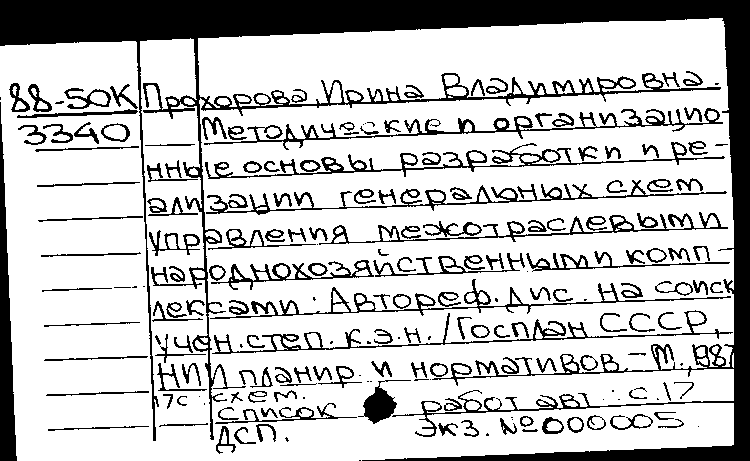 88-50К Прохорова, Ирина Владимировна.
3340 Методические и организацио-
нные основы разработки и ре-
ализации генеральных схем
управления межотраслевыми
народнохозяйственными комп-
лексами: Автореф. дис. на соиск
учен. степ. к.э.н. / Госплан СССР,
НИИ планир. и нормативов. - М., 1987
17с. схем.
Список работ авт.: с.17
ДСП. Экз. №000005.